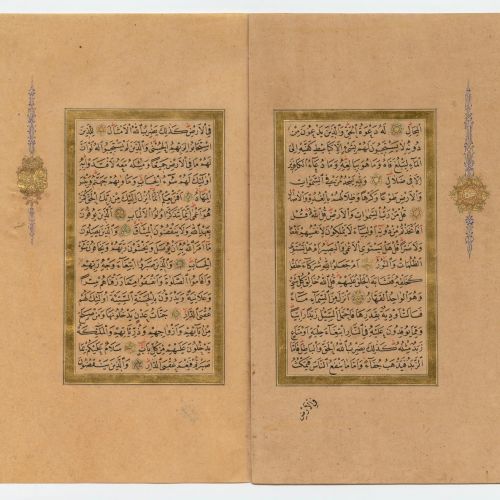 المحال له دعوة الحق والذين يدعون من
دونه لا يستجيبون لهم بشيء الا كباسط كفيه الى
الماء ليبلغ فاه وما هو ببالغه وما دعاء الكافرين
الا في ضلال ولله يسجد من في السموات
والارض طوعا وكرها وظلالهم بالغدو والاصال
قل من رب السموات والارض قل الله قل
افاتخذتم من دونه اولياء لا يملكون لانفسهم نفعا
ولا ضرا قل هل يستوي الاعمى والبصير ام هل تستوي
الظلمات والنور ام جعلوا لله شركاء خلقوا
كخلقه فتشابه الخلق عليهم قل الله خالق كل شيء
وهو الواحد القهار انزل من السماء ماء
فسالت اودية بقدرها فاحتمل السيل زبدا رابيا
ومما يوقدون عليه في النار ابتغاء حلية او متاع
زبد مثله كذلك يضرب الله الحق والباطل فاما
الزبد فيذهب جفاء واما ما ينفع الناس فيمكث
في الارض
في الارض كذلك يضرب الله الامثال للذين
استجابوا لربهم الحسنى والذين لم يستجيبوا له لو ان
لهم ما في الارض جميعا ومثله معه لافتدوا به
اولئك لهم سوء الحساب وماويهم جهنم وبئس
المهاد افمن يعلم انما انزل اليك من ربك الحق كمن
هو اعمى انما يتذكر اولوا الالباب الذين يوفون
بعهد الله ولا ينقضون الميثاق والذين يصلون
ما امر الله به ان يوصل ويخشون ربهم ويخافون سوء
الحساب والذين صبروا ابتغاء وجه ربهم
واقاموا الصلوة وانفقوا مما رزقناهم سرا
وعلانية ويدرؤن بالحسنة السيئة اولئك لهم
عقبى الدار جنات عدن يدخلونها ومن صلح
من ابائهم وازواجهم وذرياتهم والملئكة
يدخلون عليهم من كل باب سلام عليكم بما
صبرتم فنعم عقبى الدار والذين ينقضون